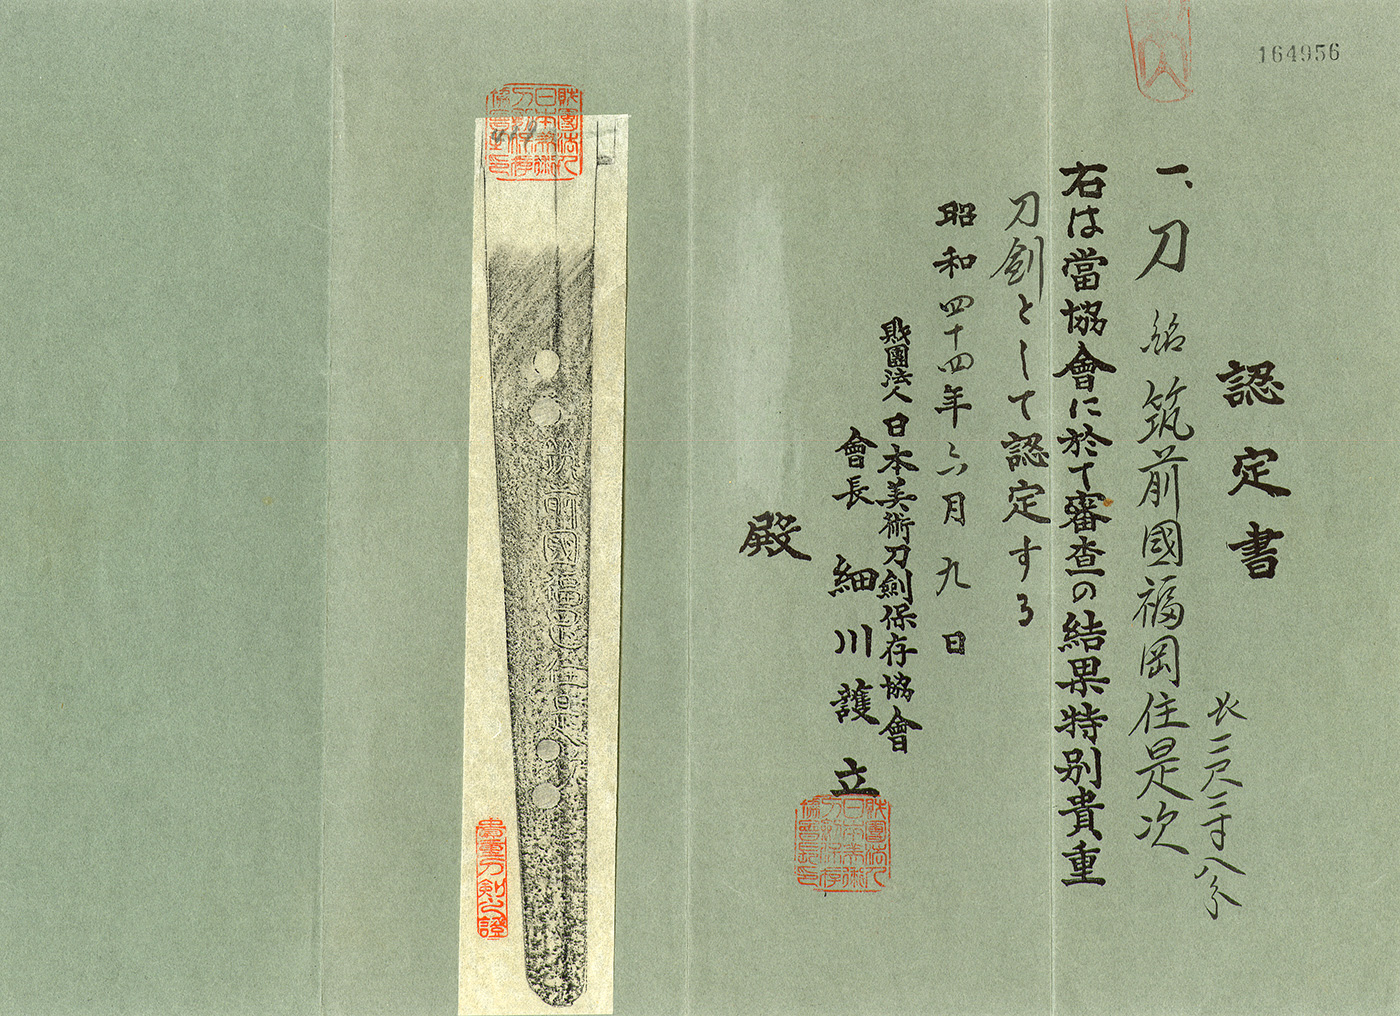 164956
認定書
一、刀 銘 筑前國福岡住是次
長二尺三寸八分
右は當協會に於て審査の結果特別貴重
刀劍として認定する
昭和四十四年六月九日
財團法人日本美術刀劍保存協會
會長 細川護立
財團法人日本美術刀劍保存協會長印
殿
財團法人日本美術刀劍保存協會
筑前國福岡住是次
貴重刀劍之證